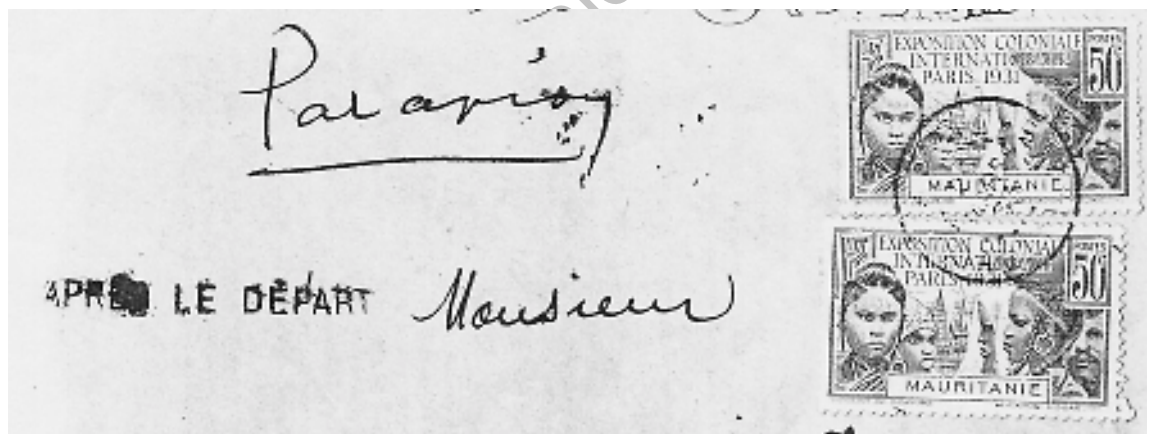 Par avion
APRES LE DÉPART
Monsieur
EXPOSITION COLONIALE
INTERNATIONALE
PARIS 1931
50
MAURITANIE
EXPOSITION COLONIALE
INTERNATIONALE
PARIS 1931
50
MAURITANIE